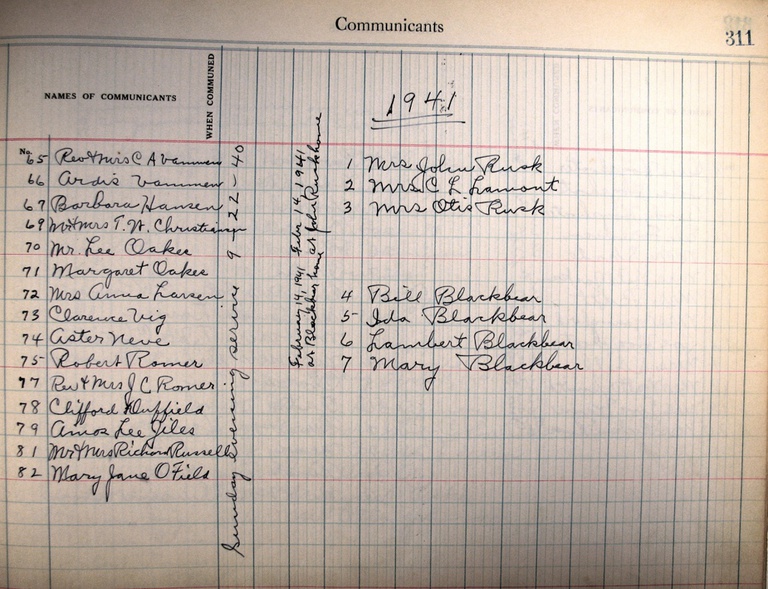 Communicants
311
NAMES OF COMMUNICANTS
WHEN COMMUNED
1941
No.
65 Rev & Mrs C A Vammen
66 Ardis Vammen
67 Barbara Hansen
69 Mr & Mrs T. W. Christiansen
70 Mr. Lee Oakes
71 Margaret Oakes
72 Mrs Anna Larsen
73 Clarence Vig
74 Aster Neve
75 Robert Romer
77 Rev & Mrs J C Romer
78 Clifford Duffield
79 Amos Lee Jiles
81 Mr & Mrs Richard Russell
82 Mary Jane O Field
Sunday evening service 9-22-40
Febr 14, 1941
at John Rusk house
1 Mrs John Rusk
2 Mrs C L Lamont
3 Mrs Otis Rusk
February 14, 1941
at Blackbear home
4 Bill Blackbear
5 Ida Blackbear
6 Lambert Blackbear
7 Mary Blackbear